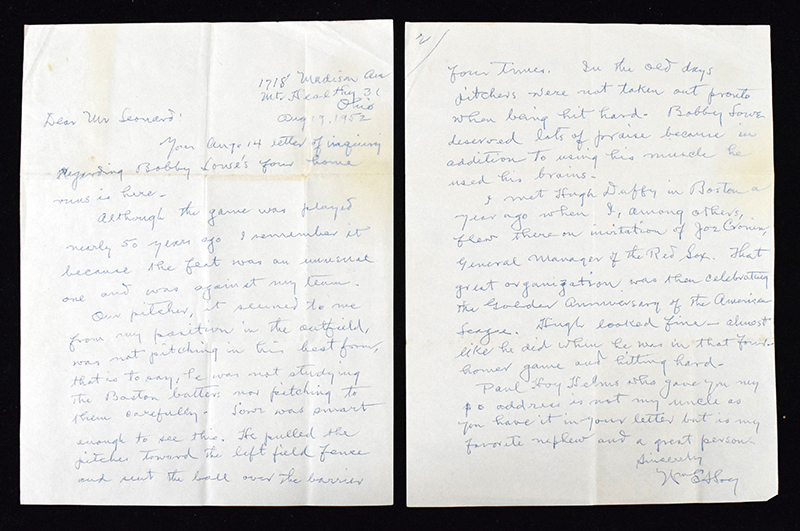 1718 Madison Ave
Mt. Healthy 31
Ohio
Aug 19, 1952
Dear Mr Leonard:
Your Aug. 14 letter of inquiry
regarding Bobby Lowe's four home
runs is here.
Although the game was played
nearly 50 years ago I remember it
because the feat was an unusual
one and was against my team.
Our pitcher, it seemed to me
from my position in the outfield,
was not pitching in his best form,
that is to say, he was not studying
the Boston batters nor pitching to
them carefully. Lowe was smart
enough to see this. He pulled the
pitches toward the left field fence
and sent the ball over the barrier
2
four times. In the old days
pitchers were not taken out pronto
when being hit hard. Bobby Lowe
deserved lots of praise because in
addition to using his muscle he
used his brains.
I met Hugh Duffy in Boston a
year ago when I, among others,
flew there on invitation of Joe Cronin,
General Manager of the Red Sox. That
great organization was then celebrating
the Golden Anniversary of the American
League. Hugh looked fine - almost
like he did when he was in that four-
homer game and hitting hard.
Paul Hoy Helms who gave you my
p o address is not my uncle as
you have it in your letter but is my
favorite nephew and a great person.
Sincerely
Wm E Hoy